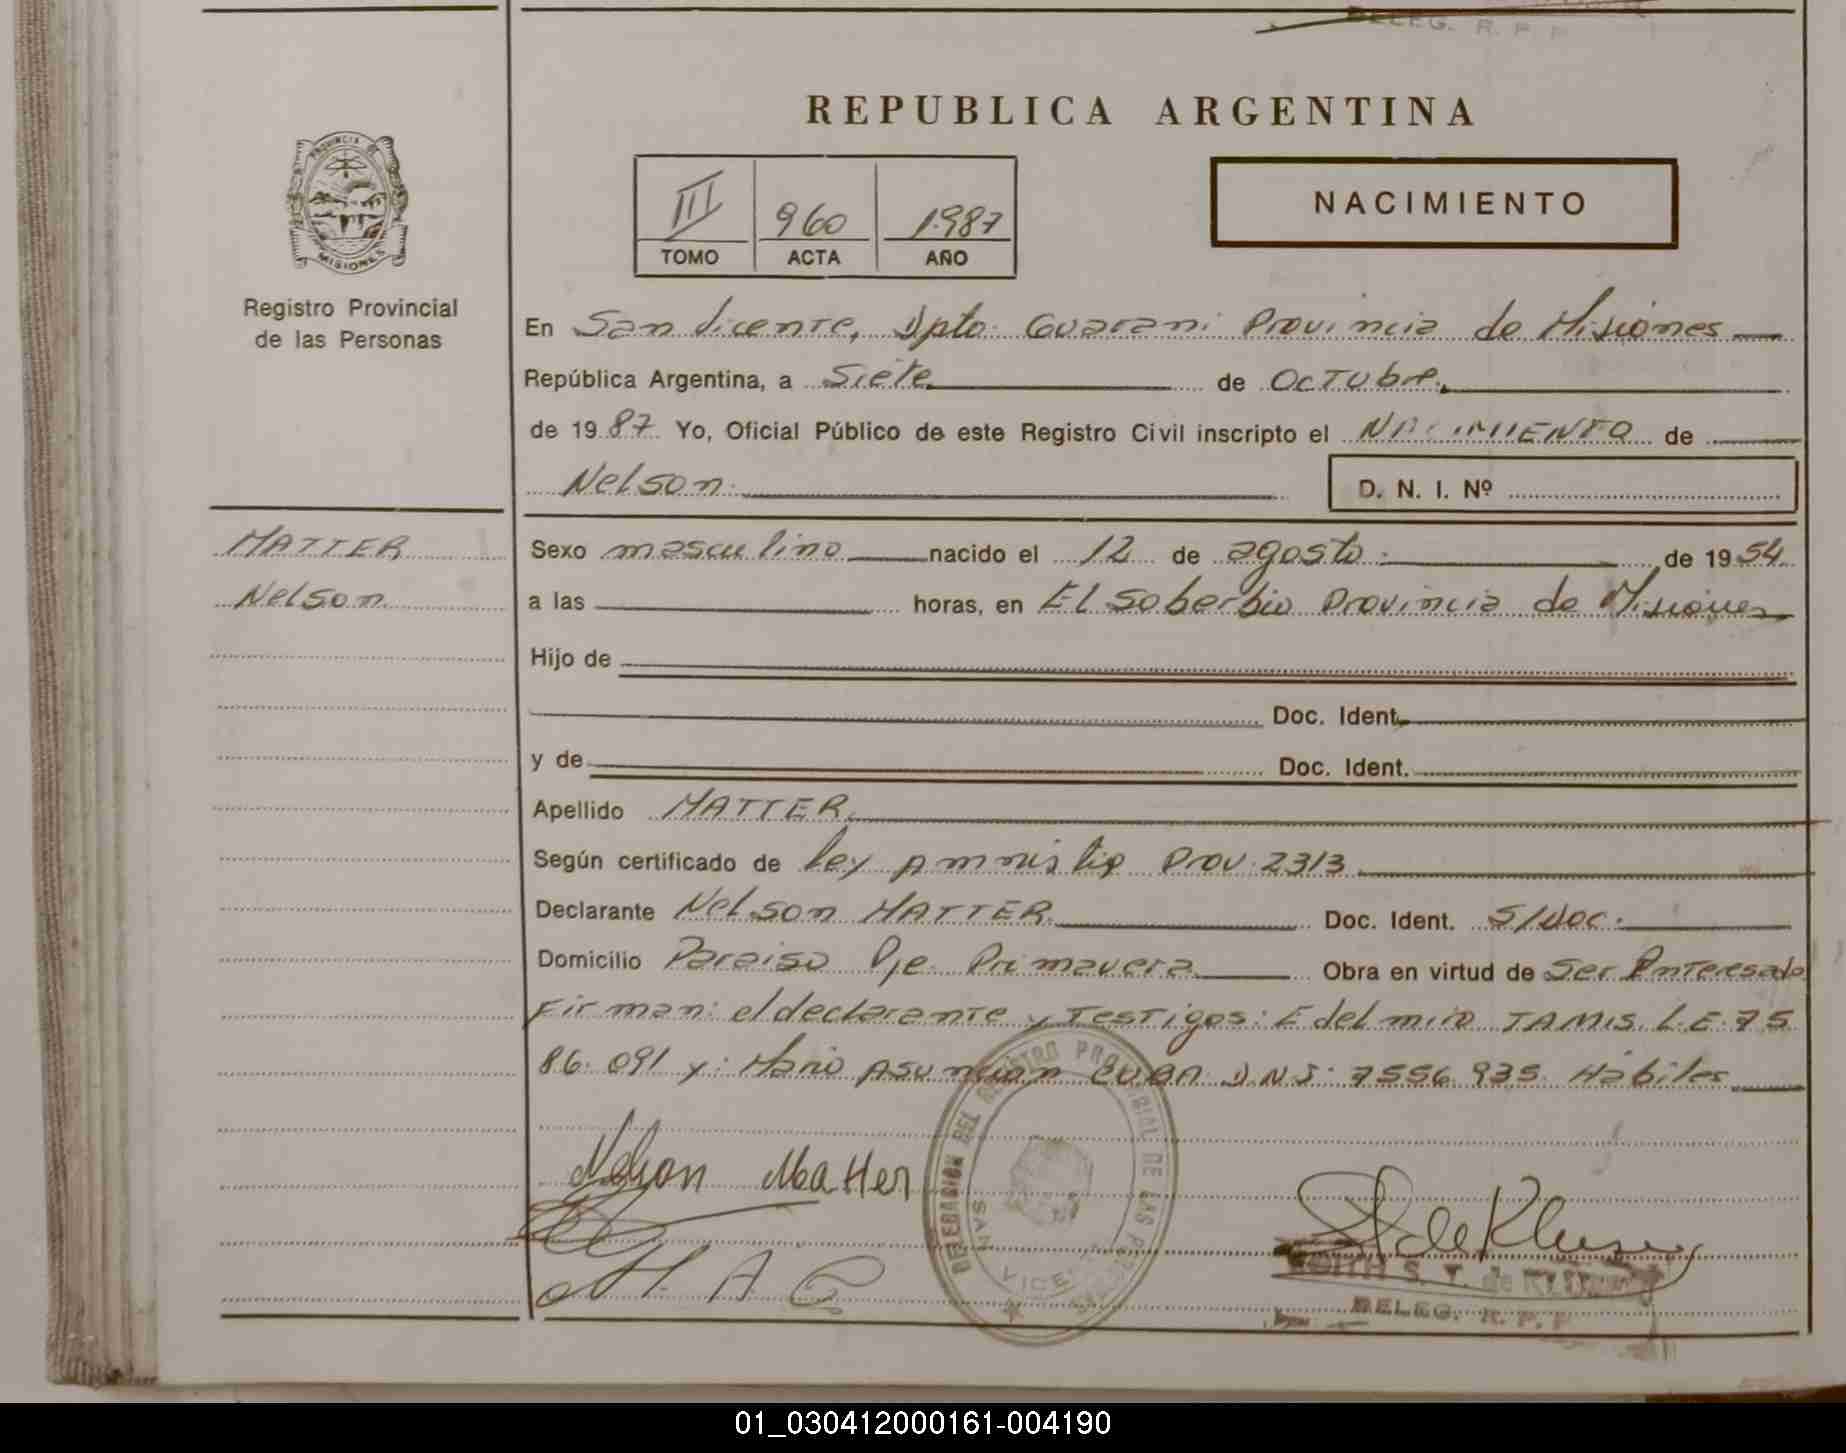 DELEG. R. P. P
REPUBLICA ARGENTINA
PROVINCIA DE
MISIONES
Registro Provincial
de las Personas
III 960 1.987
TOMO ACTA AÑO
NACIMIENTO
En San Vicente, Dpto. Guarani Provincia de Misiones
República Argentina, a Siete de Octubre.
de 1987. Yo, Oficial Público de este Registro Civil inscripto el NACIMIENTO de
Nelson.
D. N. I. Nº
MATTER
Nelson
Sexo masculino nacido el 12 de agosto. de 1954.
a las horas, en El Soberbio Provincia de Misiones
Hijo de
Doc. Ident.
y de Doc. Ident.
Apellido MATTER.
Según certificado de ley Amnistia Prov. 2313.
Declarante Nelson MATTER. Doc. Ident. S/Doc.
Domicilio Paraiso Pje. Primavera. Obra en virtud de Ser Interesado
Firman: el declarante y Testigos: Edelmiro TAMIS. L.E. 75
86.091 y: Mario Asuncion CUBA D.N.I: 7556 935. Habiles
Nelson Matter
M. A. C
DELEGACION DEL REGISTRO PROVINCIAL DE LAS PERSONAS
SAN VICENTE
S. T. de
DELEG. R. P. P
01_030412000161-004190